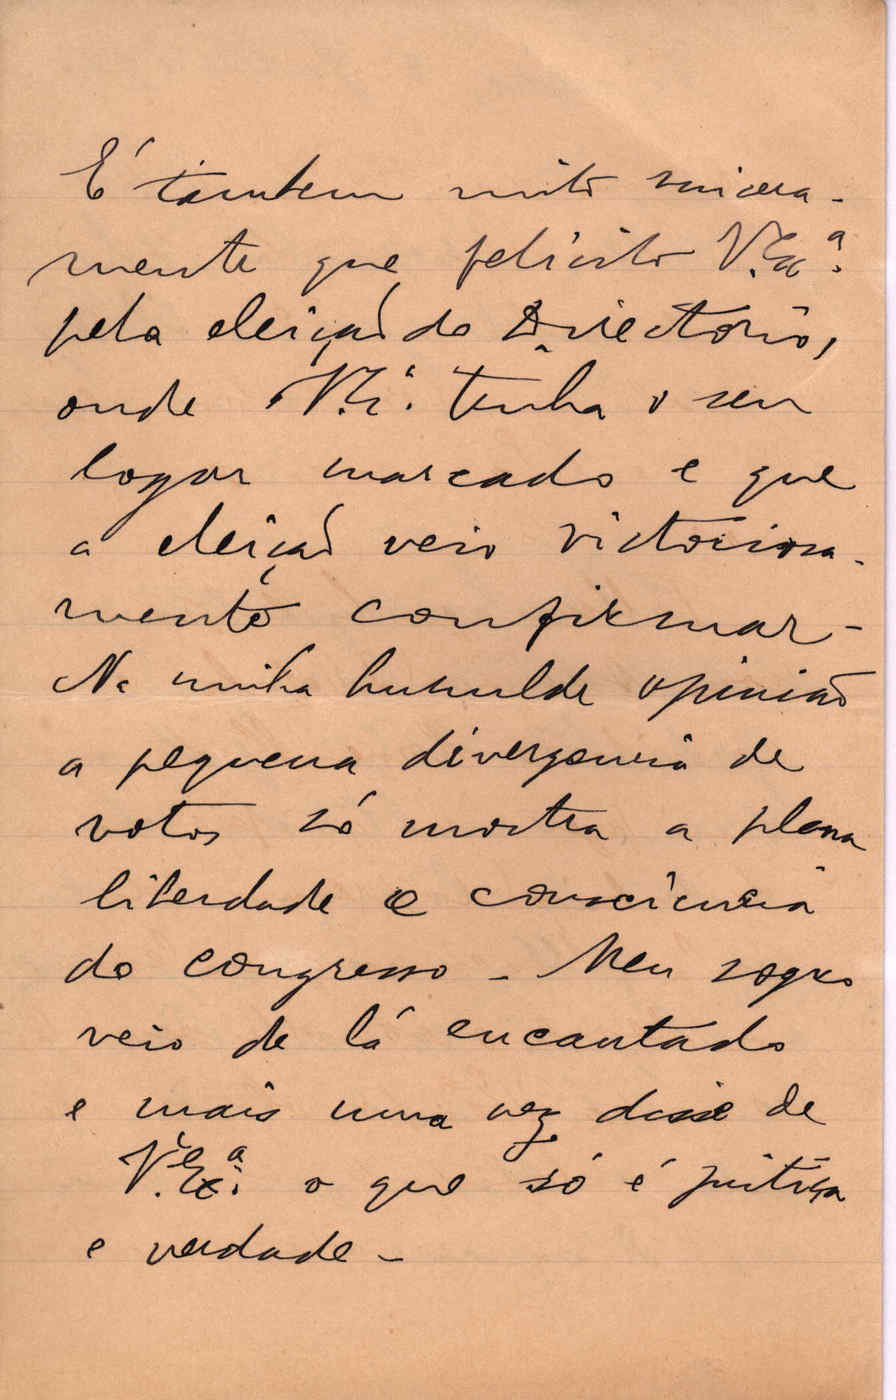 É tambem muito sincera-
mente que felicito V. Exª.
pela eleição do Directorio,
onde V. Eª. tinha o seu
logar marcado e que
a eleição veio victoriosa-
mente confirmar -
Na minha humilde opinião
a pequena divergencia de
votos só mostra a plena
liberdade e consciencia
do congresso - Meu sogro
veio de lá encantado
e mais uma vez disse de
V. Exª. o que só é justiça
e verdade -